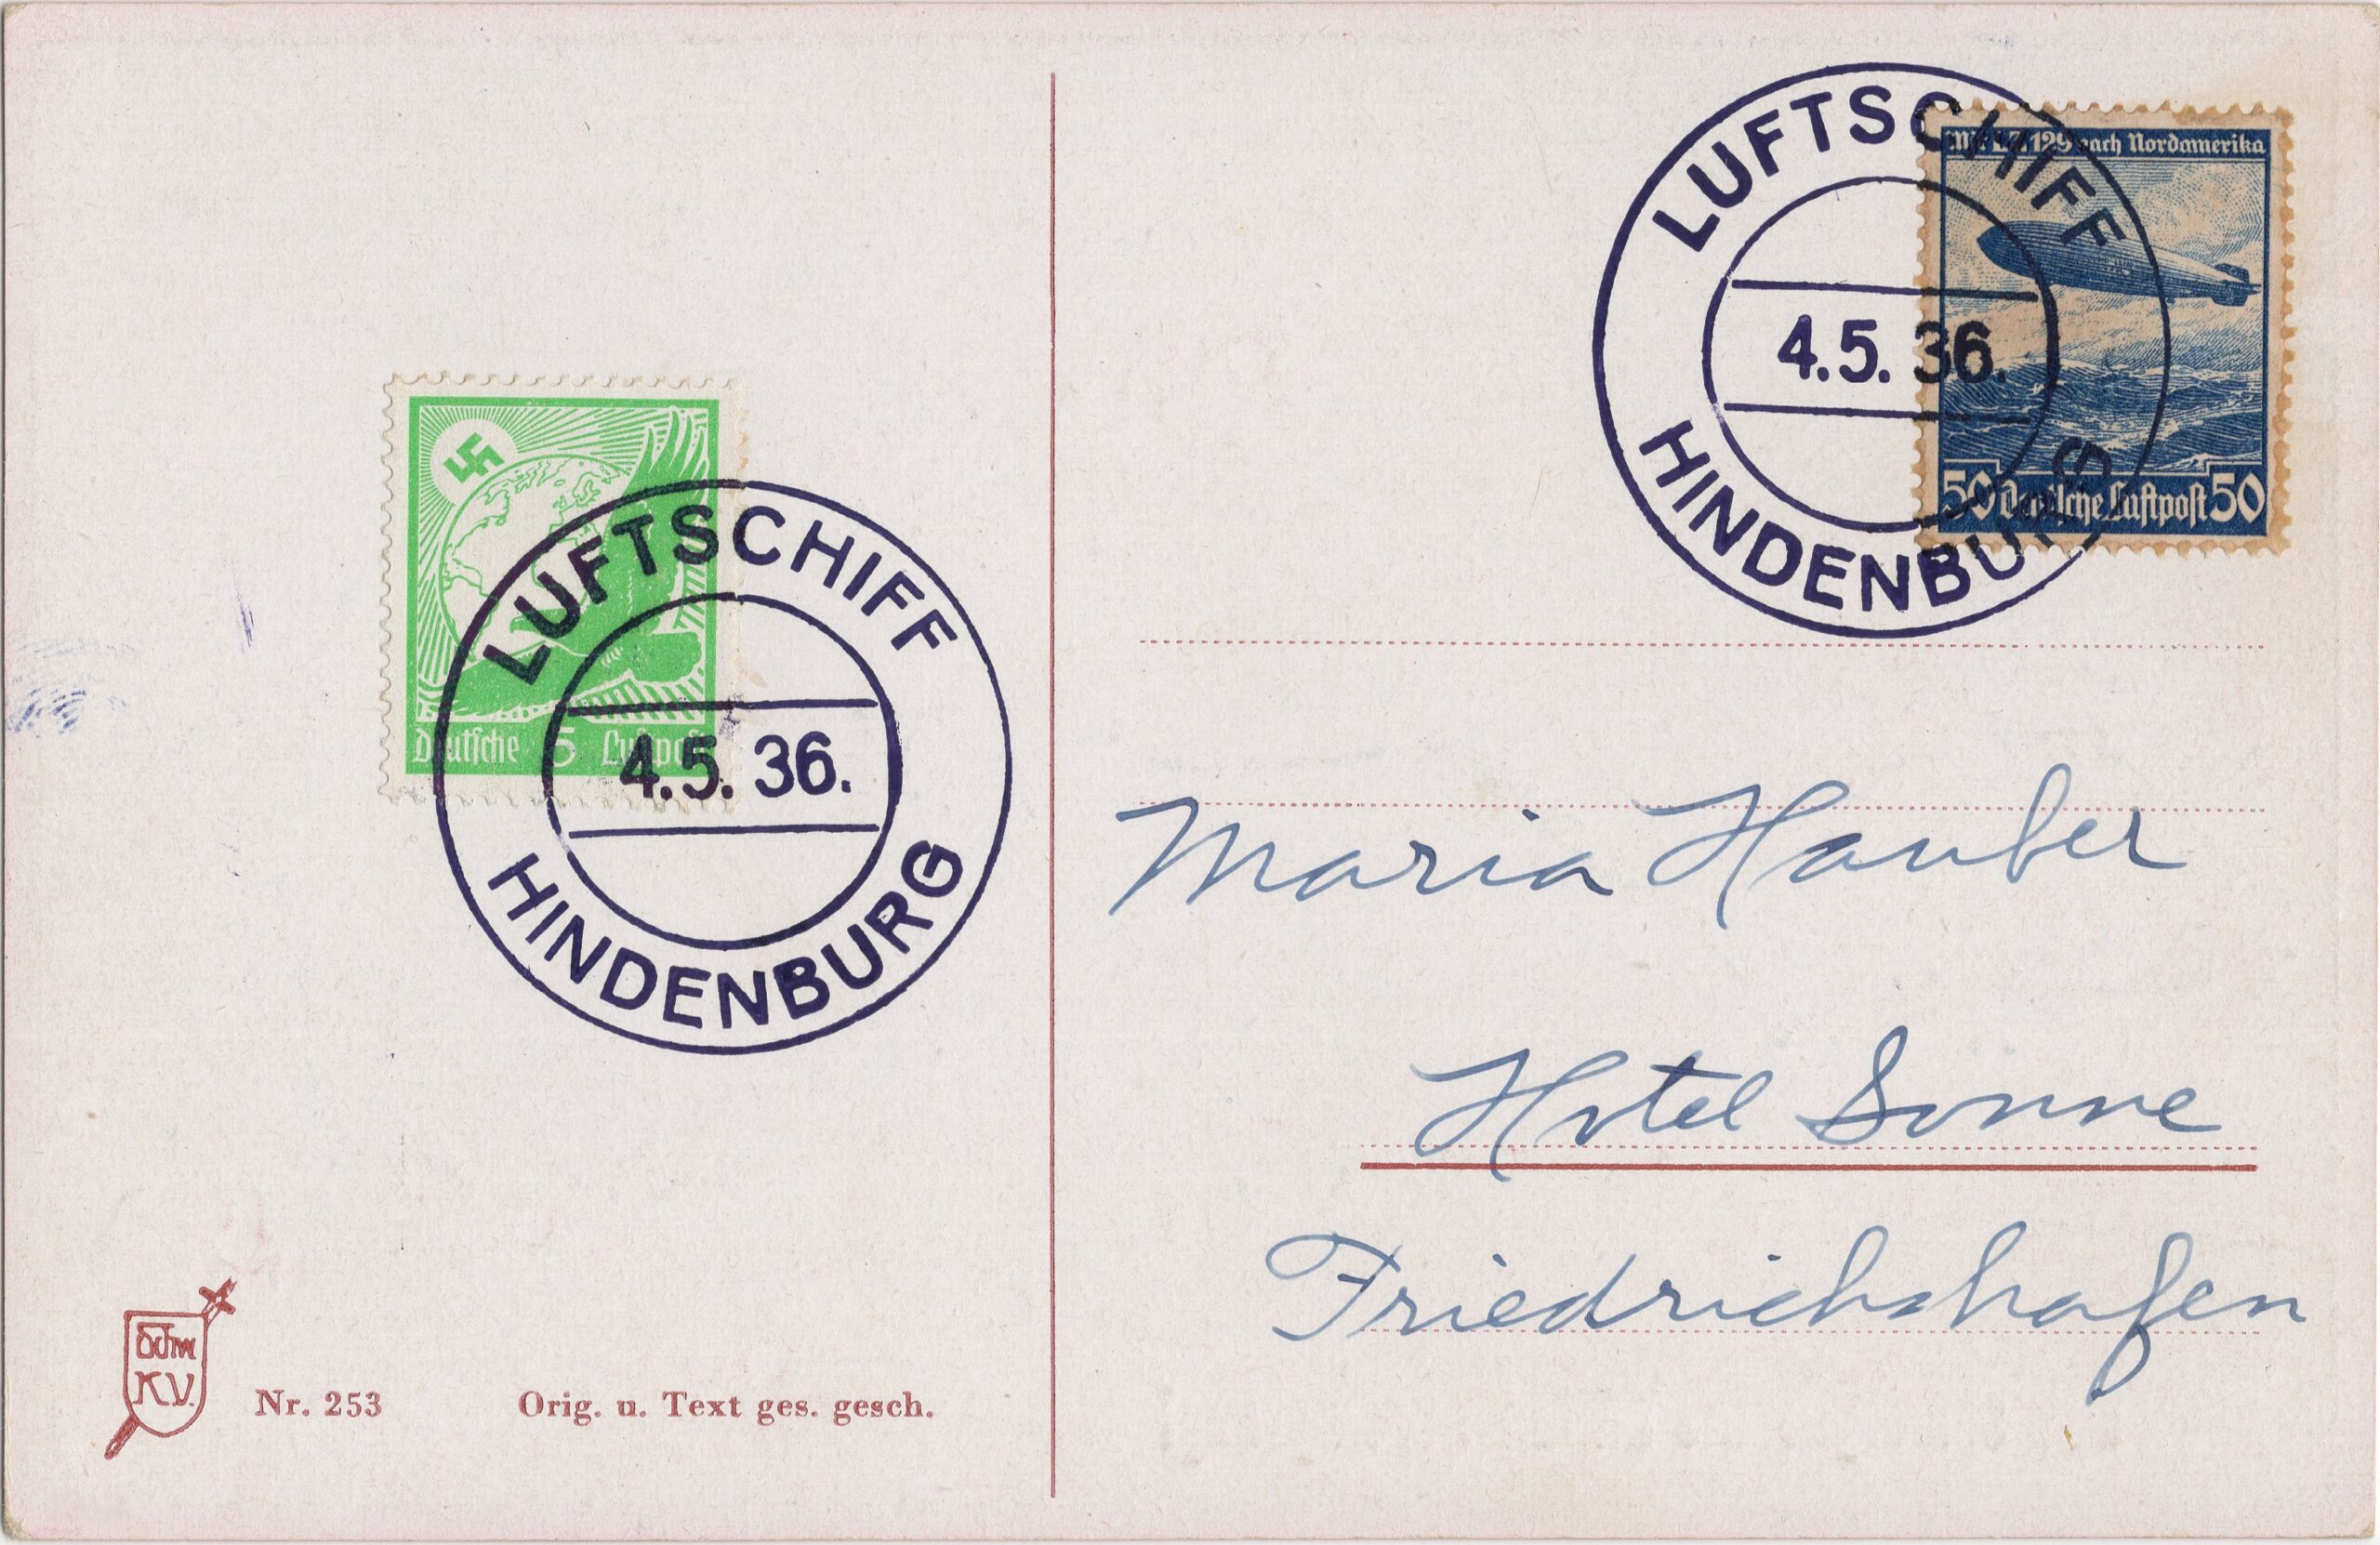 LUFTSCHIFF
4.5.36.
HINDENBURG
Mit LZ 129 nach Nordamerika
50 Deutsche Luftpost 50
LUFTSCHIFF
4.5.36.
HINDENBURG
Deutsche 5 Luftpost
Maria Hauber
Hotel Sonne
Friedrichshafen
K.V.
Nr. 253 Orig. u. Text ges. gesch.